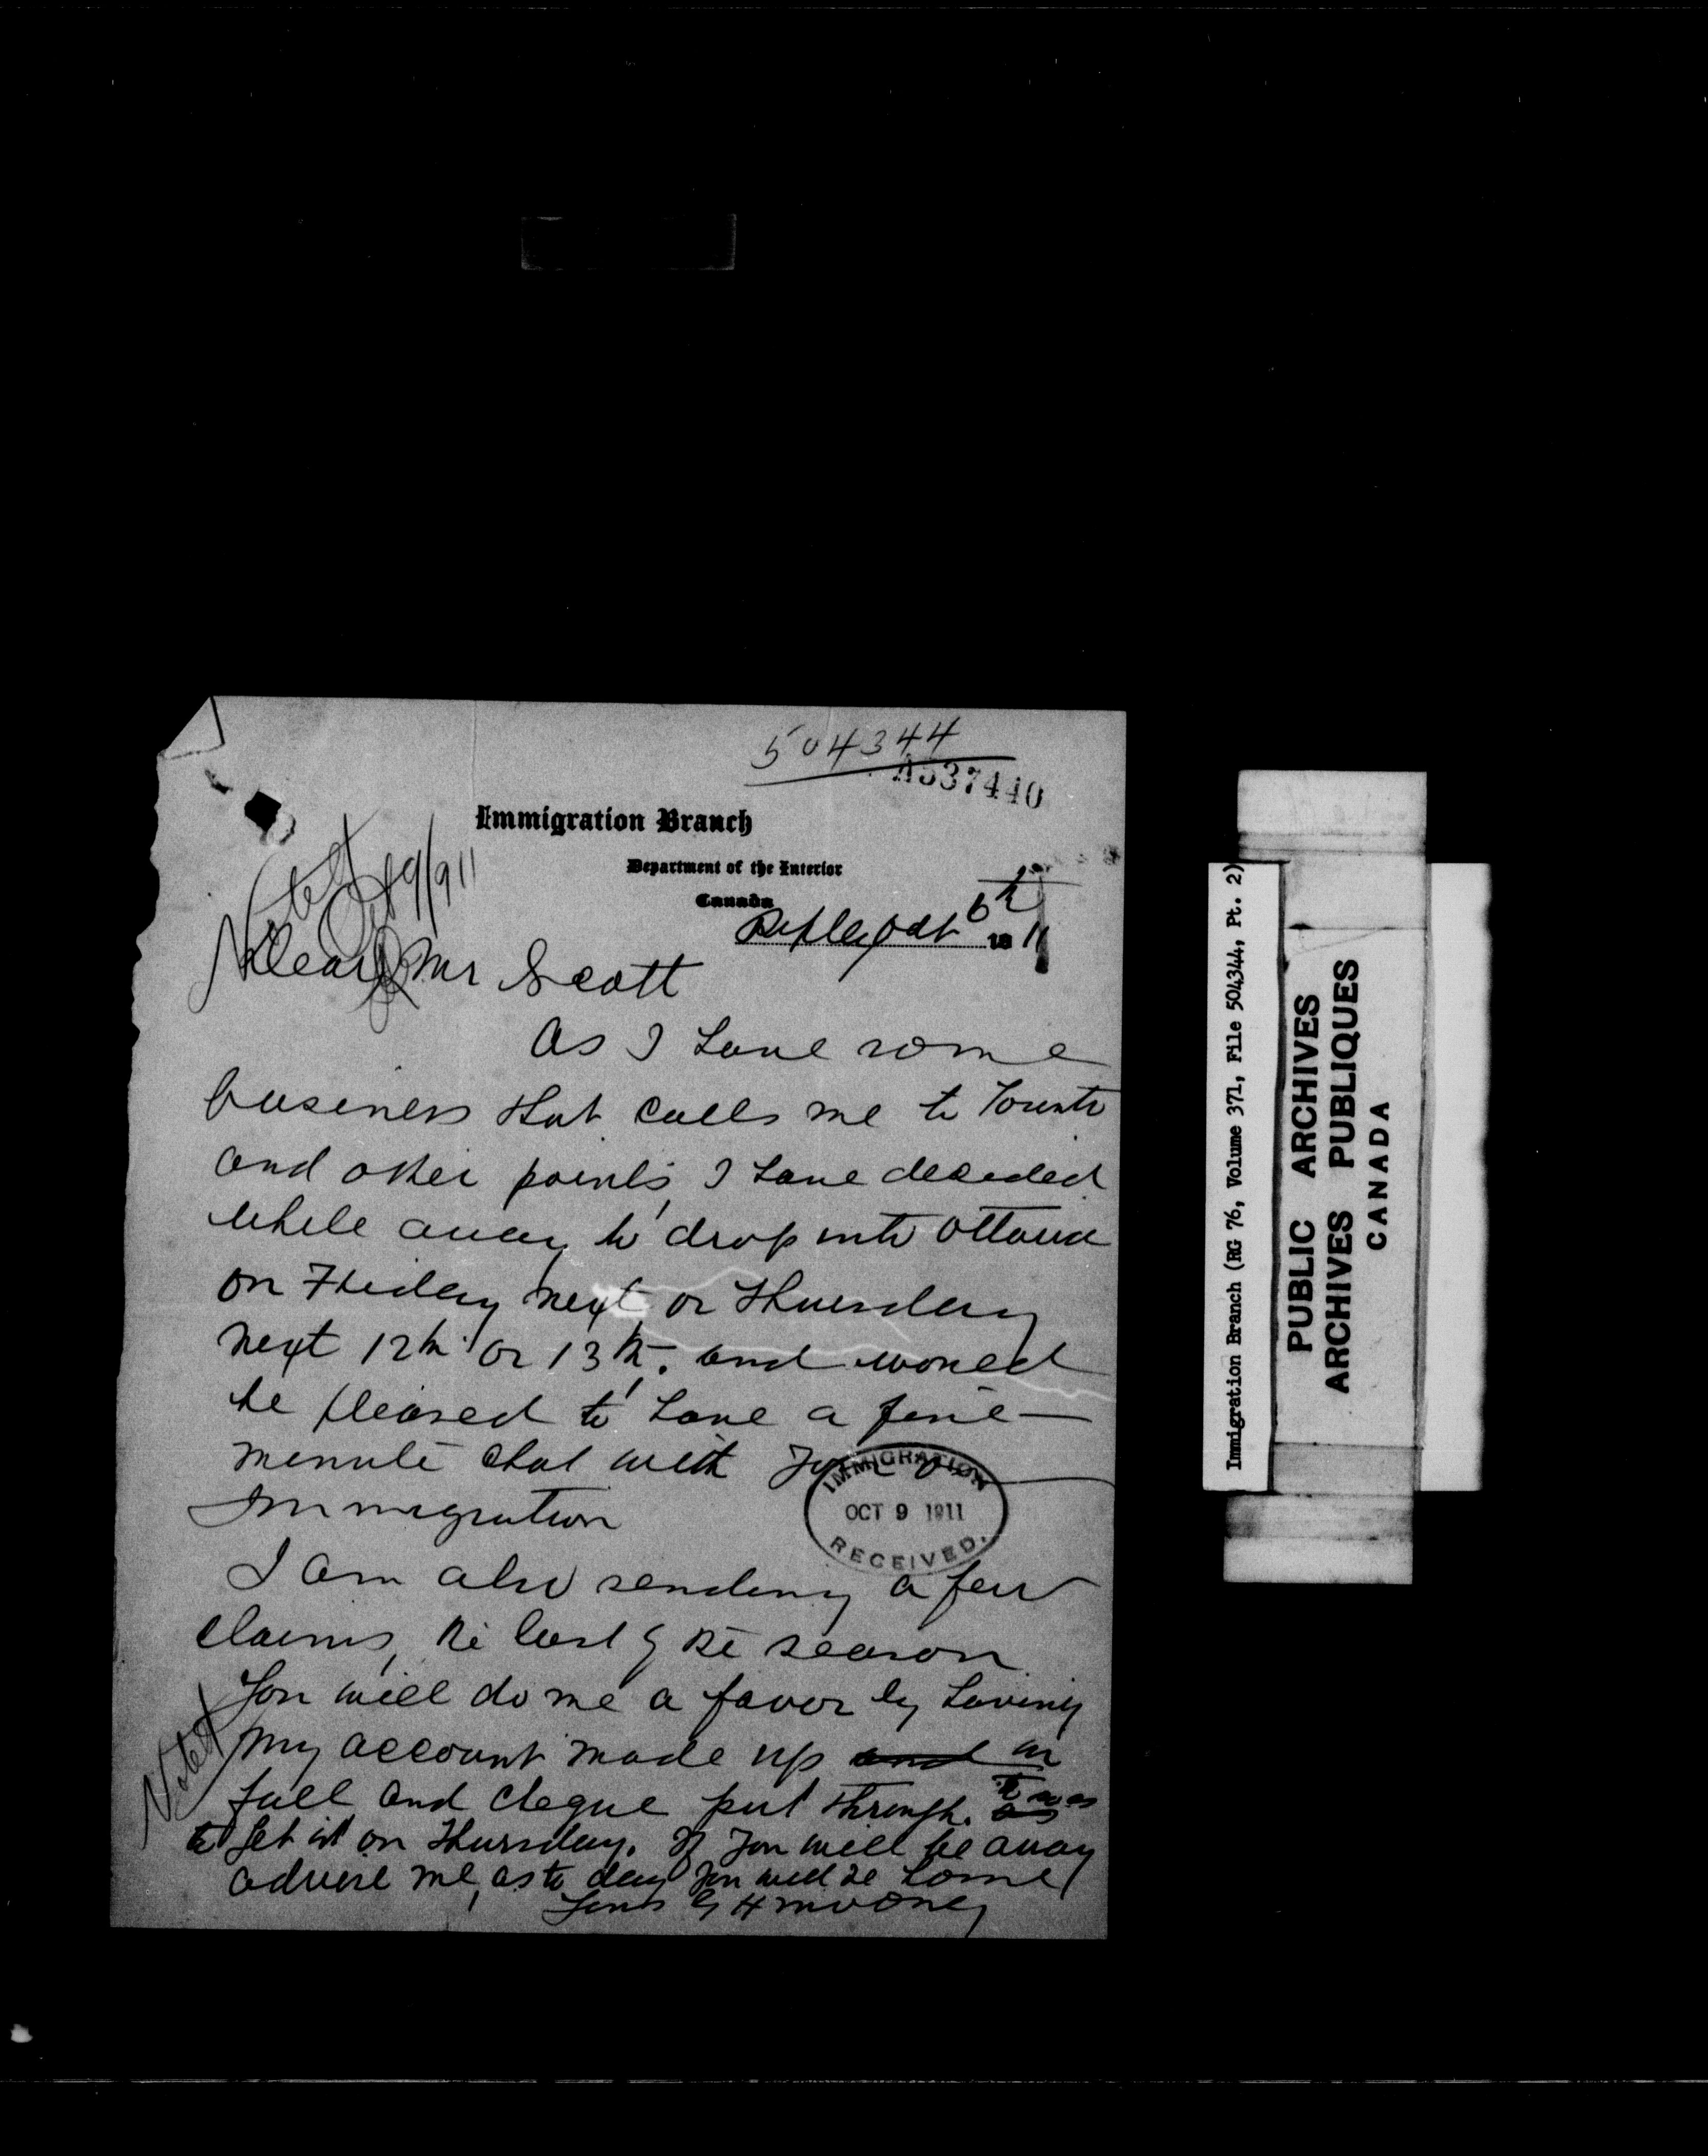 504344
A537440
Immigration Branch
Department of the Interior
Canada
Ripley Oct 6th 1911
Noted
Dear Mr Scott
As I have some
business that calls me to Toronto
and other points, I have decided
while away to drop into Ottawa
on Friday next or Thursday
next 12th or 13th, and would
be pleased to have a five
minute chat with you on
Immigration
IMMIGRATION
OCT 9 1911
RECEIVED.
I am also sending a few
claims, the last of the season
You will do me a favor by having
Noted
my account made up and in
full and cheque put through. so as
to get it on Thursday. If you will be away
advise me, as to day you will be home
Yours G H Mooney
Immigration Branch (RG 76, Volume 371, File 504344, Pt. 2)
PUBLIC ARCHIVES
ARCHIVES PUBLIQUES
CANADA